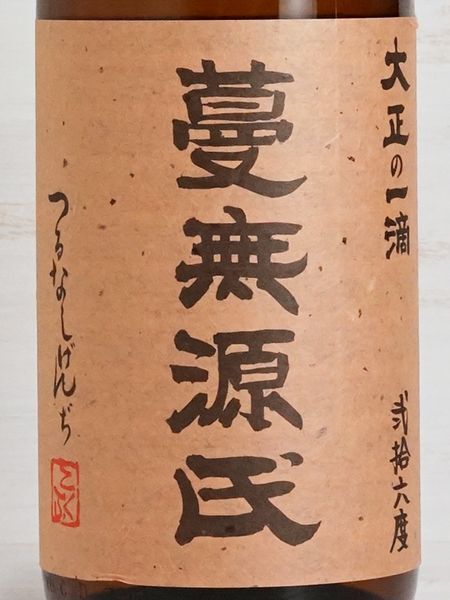 大正の一滴
弐拾六度
蔓無源氏
つるなしげんぢ